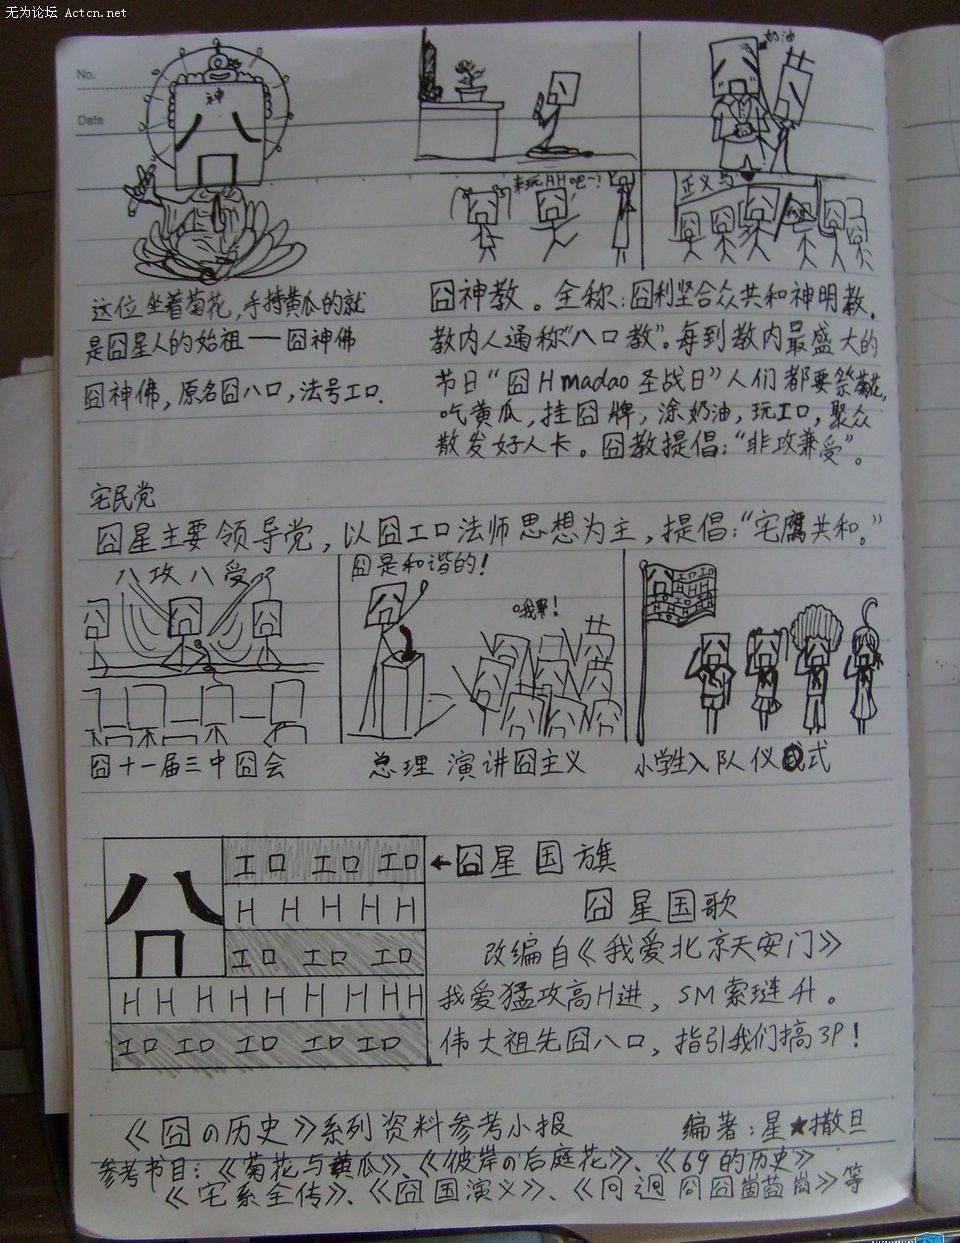 无为论坛 Actcn.net
No.
Date
神
奶油
来玩HH吧~!
正义与
这位坐着菊花,手持黄瓜的就
是囧星人的始祖——囧神佛
囧神佛,原名囧八口,法号工口.
囧神教。全称:囧利坚合众共和神明教.
教内人通称“八口教”。每到教内最盛大的
节日“囧H madao 圣战日”人们都要祭菊花,
吃黄瓜,挂囧牌,涂奶油,玩工口,聚众
散发好人卡。囧教提倡:“非攻兼受”。
宅民党
囧星主要领导党,以囧工口法师思想为主,提倡:“宅腐共和。”
八攻八受
囧是和谐的!
囧十一届三中囧会
总理演讲囧主义
小学生入队仪式
工口 工口 工口
H H H H H
工口 工口 工口
H H H H H H H H H
工口 工口 工口 工口 工口
←囧星国旗
囧星国歌
改编自《我爱北京天安门》
我爱猛攻高H进,SM索琏升。
伟大祖先囧八口,指引我们搞3P!
《囧の历史》系列资料参考小报
编著:星★撒旦
参考书目:《菊花与黄瓜》、《彼岸の后庭花》、《69的历史》
《宅系全传》、《囧国演义》、《冏迥冏囧崮莔岗》等